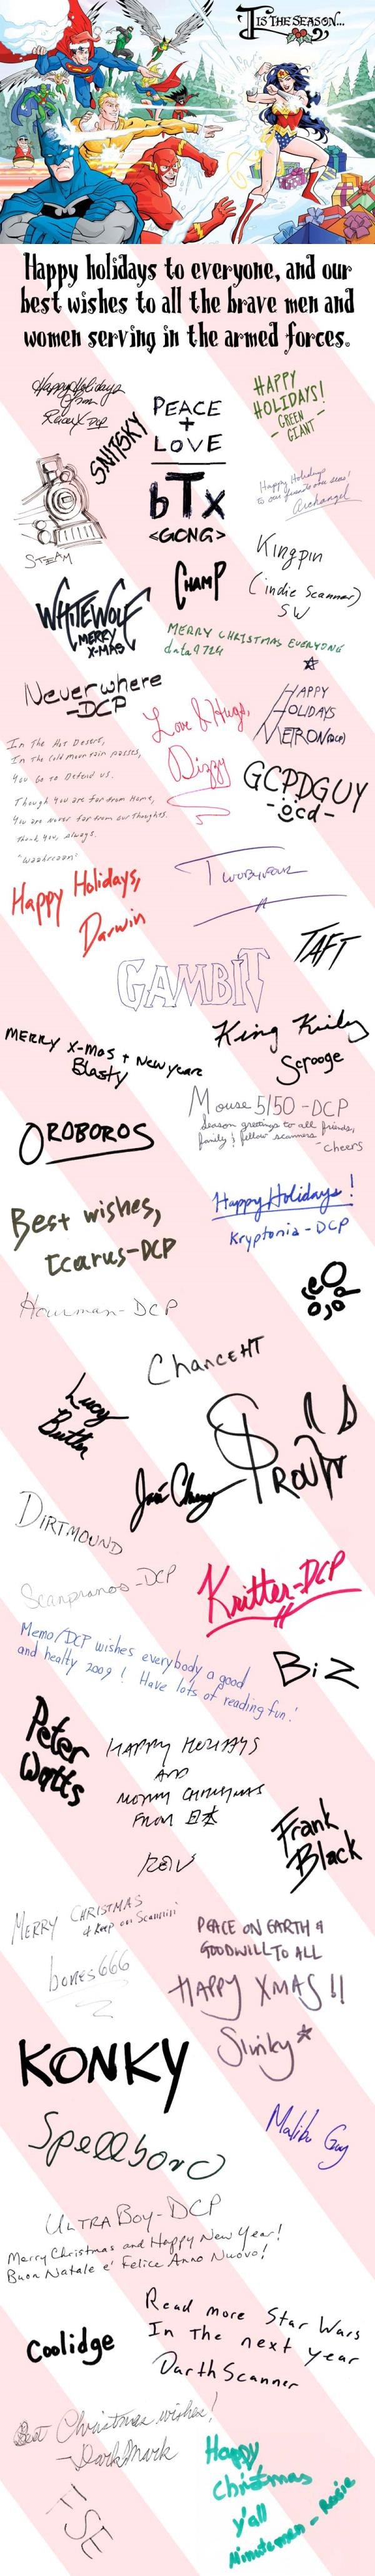 TIS THE SEASON...
Happy holidays to everyone, and our
best wishes to all the brave men and
women serving in the armed forces.
Happy Holidays
from
RacerX-DCP
SNITSKY
PEACE
+
LOVE
bTx
<GCNG>
HAPPY
HOLIDAYS!
GREEN
- GIANT -
STEAM
Happy Holidays
Archangel
CHAMP
Kingpin
(indie Scanner)
SW
WHITEWOLF
MERRY
X-MAS
MERRY CHRISTMAS EVERYONE
data9724
Neverwhere
-DCP
Love & Hugs,
Dizzy
HAPPY
HOLIDAYS
METRON(DCP)
In The Hot Desert,
In The Cold Mountain passes,
You Go To Defend us.
Though You are far from Home,
You are Never far from our Thoughts.
Thank You, Always.
GCPDGUY
-dcd-
Happy Holidays,
Darwin
Twobyfour
TAFT
GAMBIT
King Krily
Scrooge
MERRY X-Mas + New year
Blasty
Mouse5150-DCP
Season greetings to all friends,
family & fellow scanners
-cheers
OROBOROS
Best wishes,
Icarus-DCP
Happy Holidays!
Kryptonia-DCP
Hourman-DCP
ChanceHT
Lucy
Butler
PROUTY
DIRTMOUND
Scanpranos-DCP
Kritter-DCP
Memo/DCP wishes everybody a good
and healty 2009! Have lots of reading fun!
BiZ
Peter
Watts
HAPPY HOLIDAYS
AND
MERRY CHRISTMAS
FROM 日本
Frank
Black
MERRY CHRISTMAS
& Keep on Scannin'
bones666
PEACE ON EARTH &
GOODWILL TO ALL
HAPPY XMAS!!
Slinky
KONKY
Spellbord
Malibu Guy
ULTRABOY-DCP
Merry Christmas and Happy New Year!
Buon Natale e' Felice Anno Nuovo!
Read more Star Wars
In The next year
DarthScanner
Coolidge
Best Christmas wishes!
-DarkMark
FSE
Happy
Christmas
y'all
Minutemen-Rosie